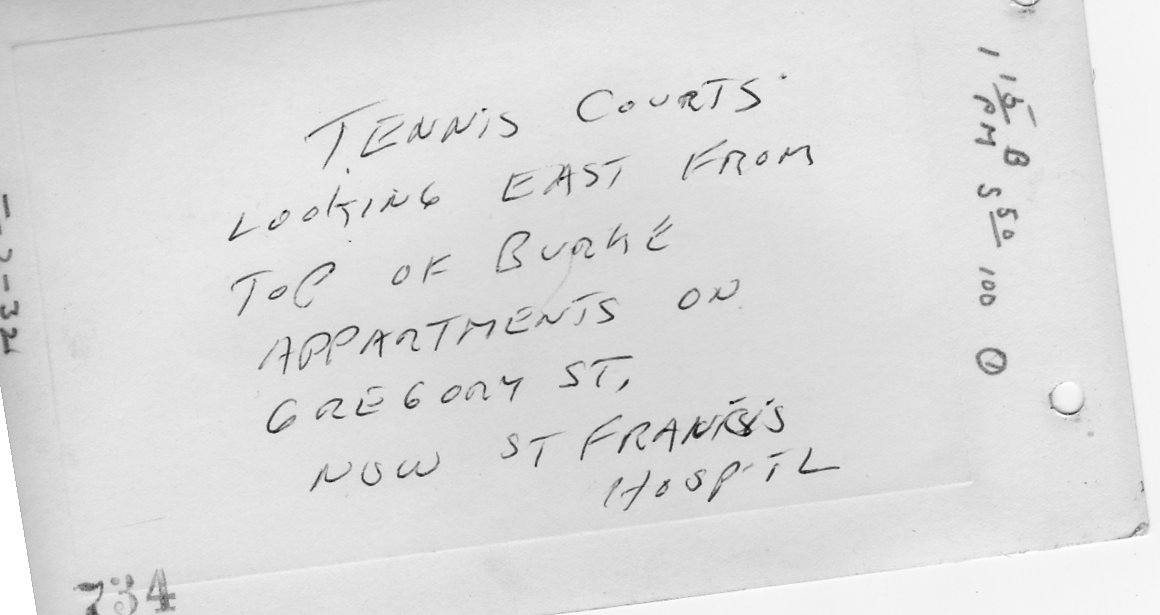 TENNIS COURTS
LOOKING EAST FROM
TOP OF BURKE
APPARTMENTS ON
GREGORY ST,
NOW ST FRANCIS
HOSPITL
1 15 B 5 50 100 1
PM
734